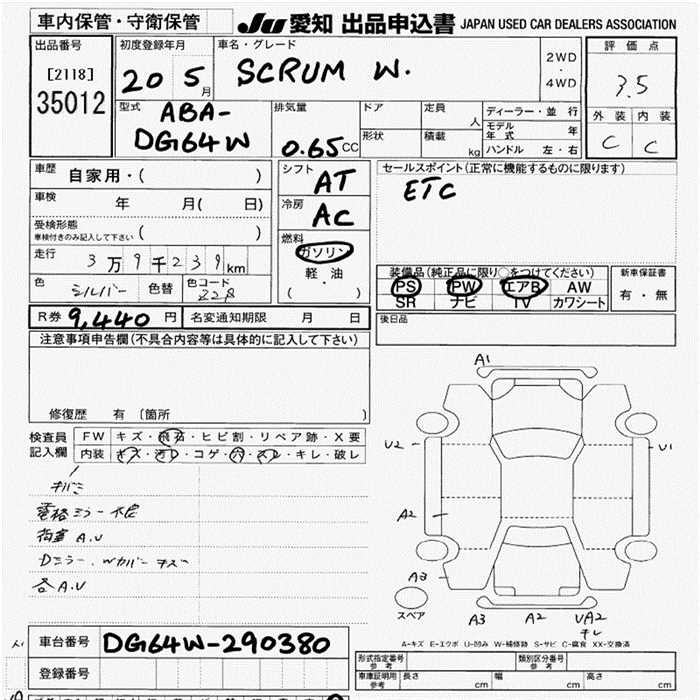 車内保管・守衛保管
JU 愛知 出品申込書 JAPAN USED CAR DEALERS ASSOCIATION
出品番号
[2118]
35012
初度登録年月
20 5月
車名・グレード
SCRUM W.
2WD
・
4WD
評価点
3.5
外装 内装
C C
型式
ABA-
DG64W
排気量
0.65cc
ドア
形状
定員
人
積載
kg
ディーラー・並行
モデル年式 年
ハンドル 左・右
車歴 自家用・( )
車検 年 月( 日)
受検形態
車検付きのみ記入して下さい ( )
走行 3万9千239km
色 シルバー 色替 色コード Z2S
シフト
AT
冷房
AC
燃料
ガソリン
軽・油
( )
セールスポイント(正常に機能するものに限ります)
ETC
装備品(純正品に限り○をつけてください)
PS PW エアB AW
SR ナビ TV カワシート
新車保証書
有・無
R券 9,440円 名変通知期限 月 日
後日品
注意事項申告欄(不具合内容等は具体的に記入して下さい)
修復歴 有 〔箇所 〕
検査員
記入欄
FW キズ・飛石・ヒビ割・リペア跡・X要
内装 キズ・汚レ・コゲ・穴・スレ・キレ・破レ
電格ミラー不良
A.U
Dミラー.Wカバーキズ
各A.U
A1
U2
U1
A2
A3
スペア
A3 A2 UA2
キレ
A-キズ E-エクボ U-凹み W-補修跡 S-サビ C-腐食 XX-交換済
車台番号 DG64W-290380
登録番号
形式指定番号
参考
類別区分番号
参考
車庫証明用
参考
長さ cm 幅 cm 高さ cm